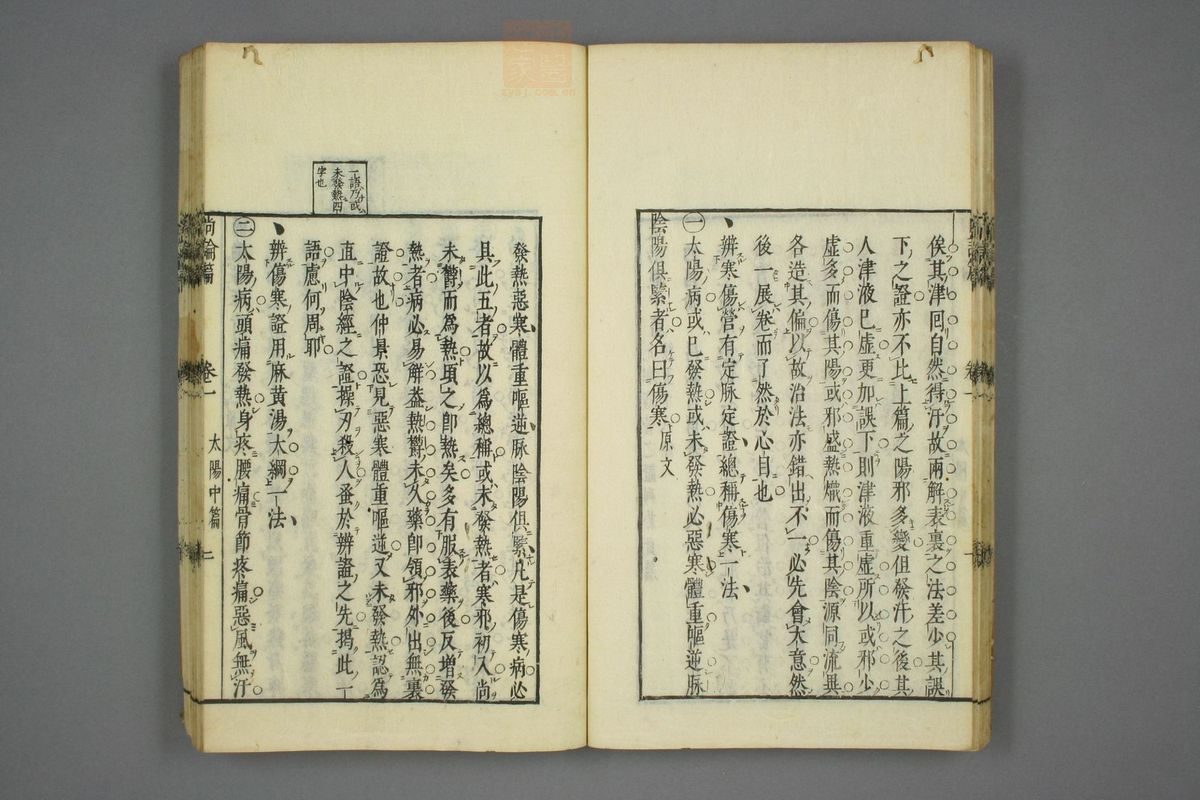 俟其津回自然得汗故兩解表裏之法差少其誤
下之證亦不比上篇之陽邪多變但發汗之後其
人津液已虛更加誤下則津液重虛所以或邪少
虛多而傷其陽或邪盛熱熾而傷其陰源同流異
各造其偏以故治法亦錯出不一必先會大意然
後一展卷而了然於心目也
辨寒傷營有定脉定證總稱傷寒一法
㊀太陽病或已發熱或未發熱必惡寒體重嘔逆脉
陰陽俱緊者名曰傷寒原文
一語乃或
未發熱四
字也
發熱惡寒體重嘔逆脉陰陽俱緊凡是傷寒病必
具此五者故以爲總稱或未發熱者寒邪初入尚
未鬱而爲熱頃之卽熱矣多有服表藥後反增發
熱者病必易解葢熱鬱未久藥卽領邪外出無裏
證故也仲景恐見惡寒體重嘔逆又未發熱認爲
直中陰經之證操刃殺人蚤於辨證之先揭此一
語慮何周耶
辨傷寒證用麻黃湯大綱一法
㊁太陽病頭痛發熱身疼腰痛骨節疼痛惡風無汗
尚論篇
卷一
太陽中篇
二
zysj.com.cn